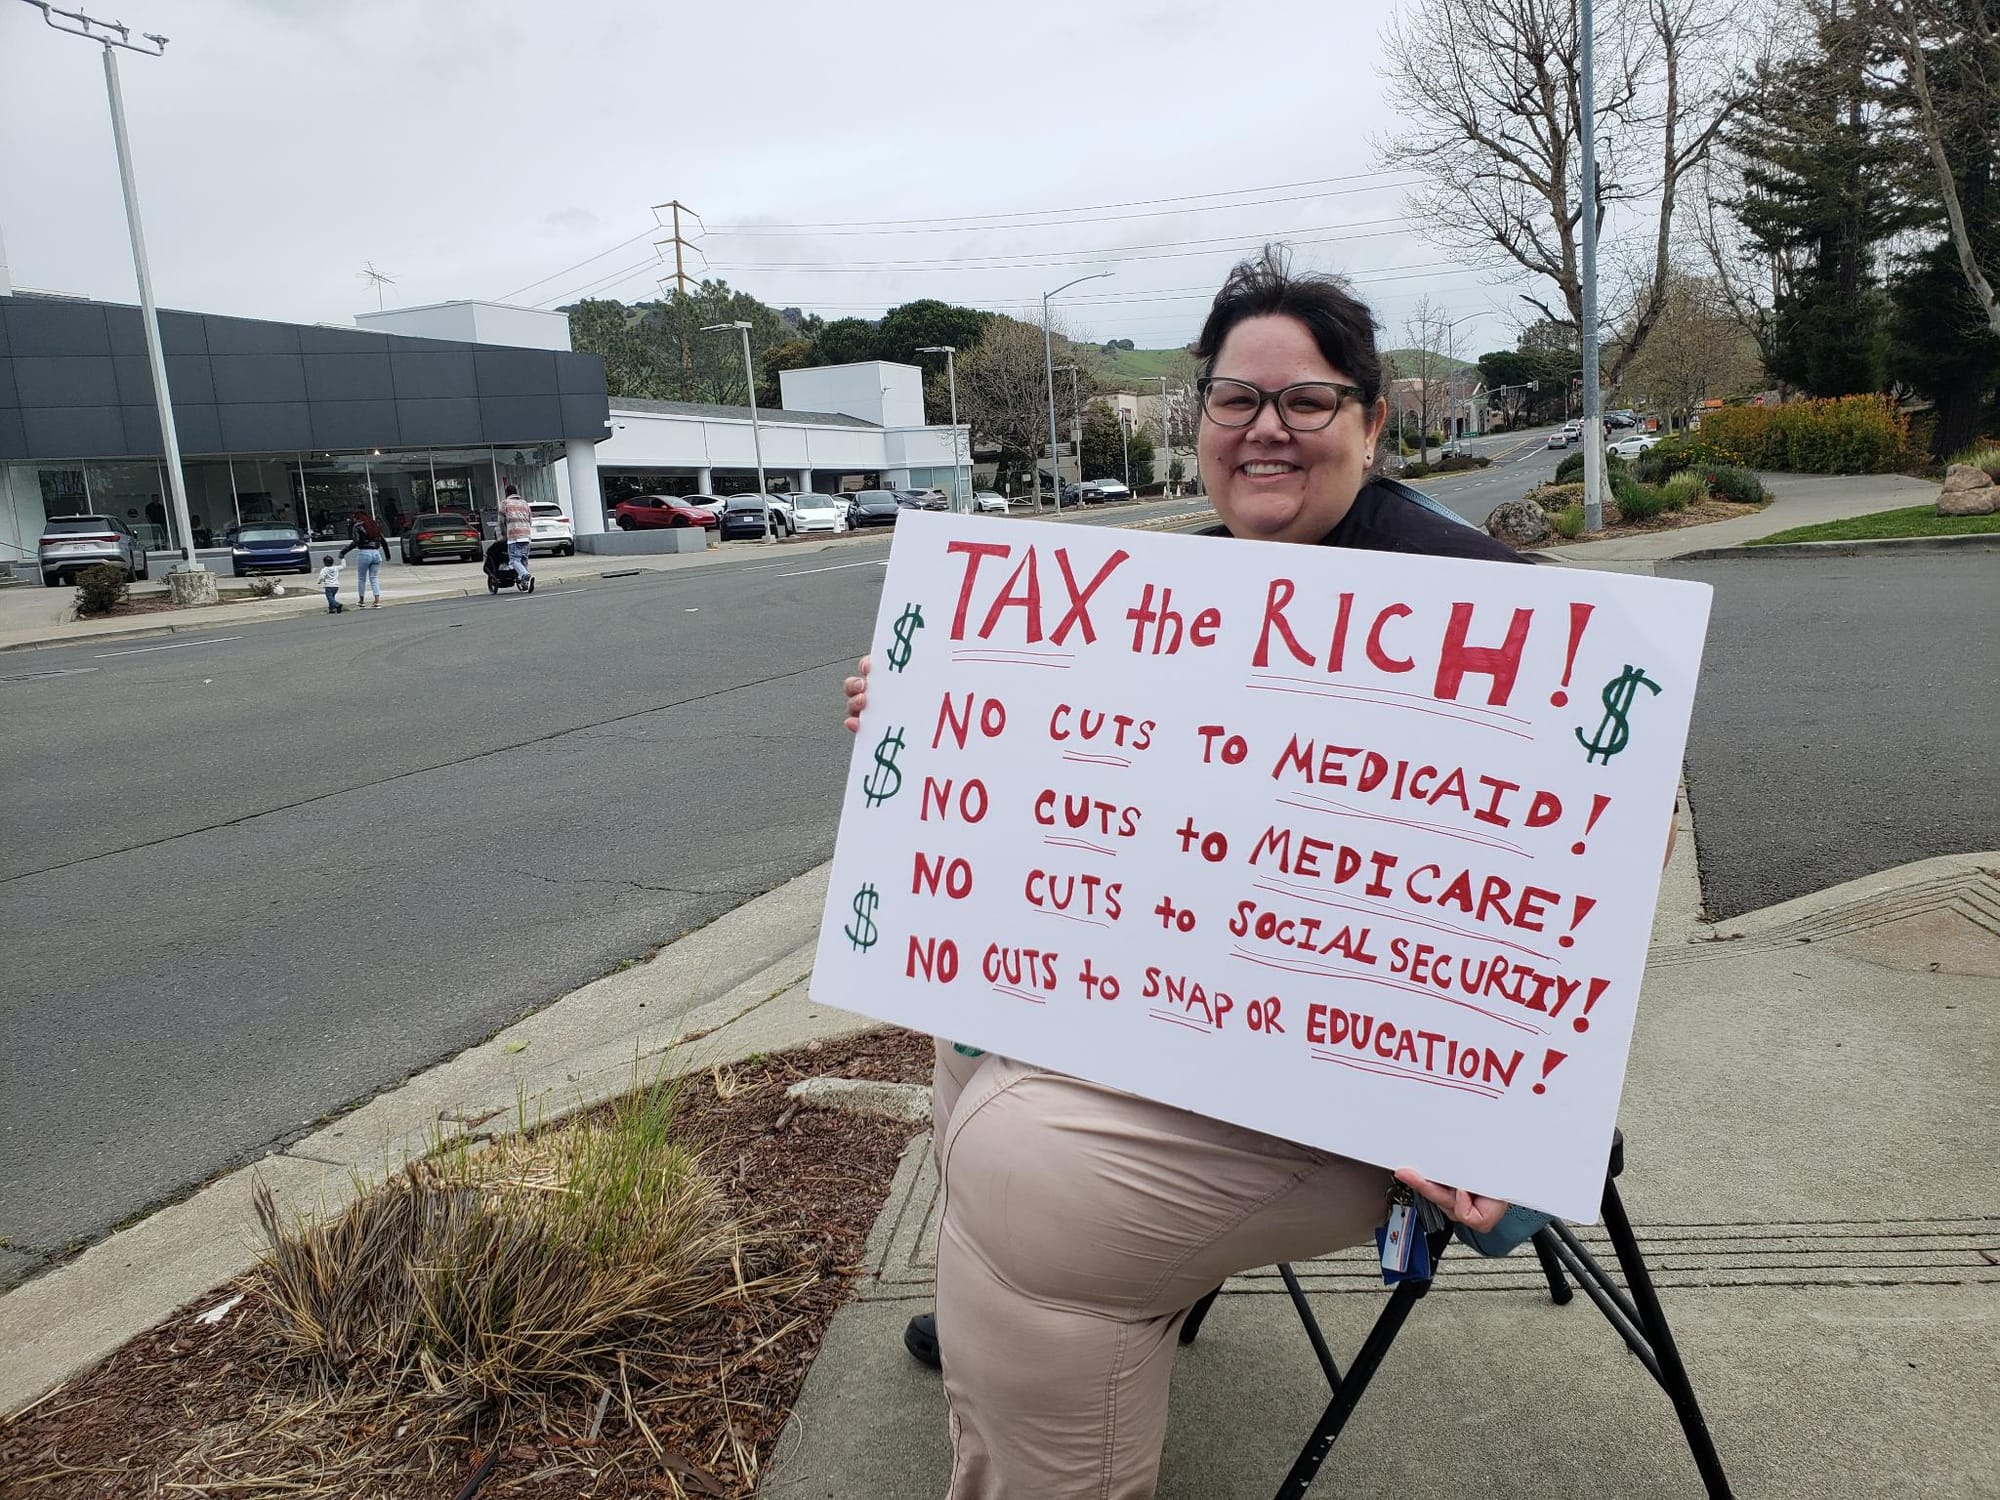 $ TAX the RICH! $
$ NO CUTS TO MEDICAID!
NO CUTS to MEDICARE!
NO CUTS to SOCIAL SECURITY!
$ NO CUTS to SNAP OR EDUCATION!